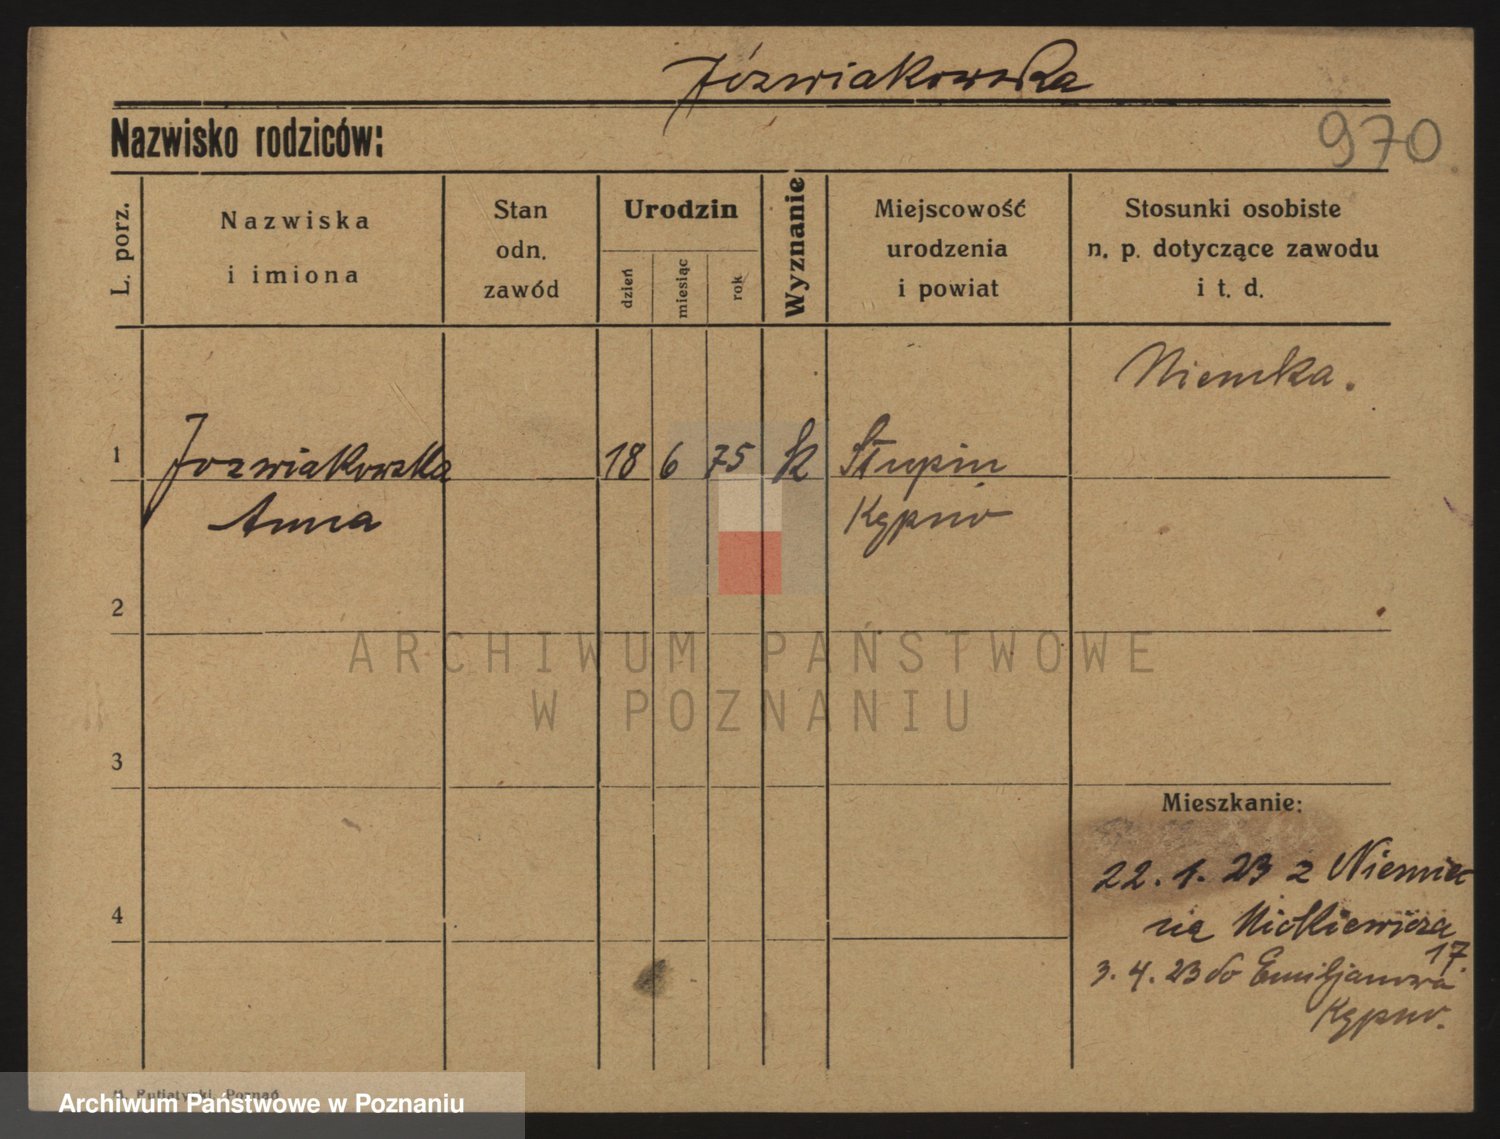 Józwiakowska
Nazwisko rodziców:
970
L. porz.
Nazwiska
i imiona
Stan
odn.
zawód
Urodzin
dzień
miesiąc
rok
Wyznanie
Miejscowość
urodzenia
i powiat
Stosunki osobiste
n. p. dotyczące zawodu
i t. d.
Niemka.
1 Jozwiakowska 18 6 75 k Słupin
Anna Kępno
2
ARCHIWUM PAŃSTWOWE
W POZNANIU
3
Mieszkanie:
22.1.23 z Niemiec
4
Mickiewicza
17.
3.4.23 do Emiljanowa
Kępno.
Poznań
Archiwum Państwowe w Poznaniu